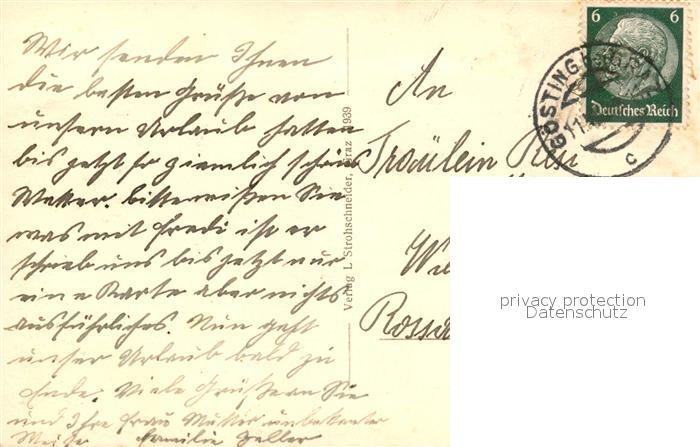 Wir senden Ihnen
die besten Grüße von
unsern Urlaub hatten
bis jetzt so ziemlich schönes
Wetter. bitte wißen Sie
was mit Fredi ist er
schrieb uns bis jetzt nur
eine Karte aber nichts
ausführliches. Nun geht
unser Urlaub bald zu
Ende. Viele Grüße an Sie
und Ihre Frau Mutter unbekannter
Weise Familie Geller
Verlag L. Strohschneider, Graz 1939
An
Fräulein
Wie
Rossa
6 6
Deutsches Reich
GÖSTING
11
c
privacy protection
Datenschutz